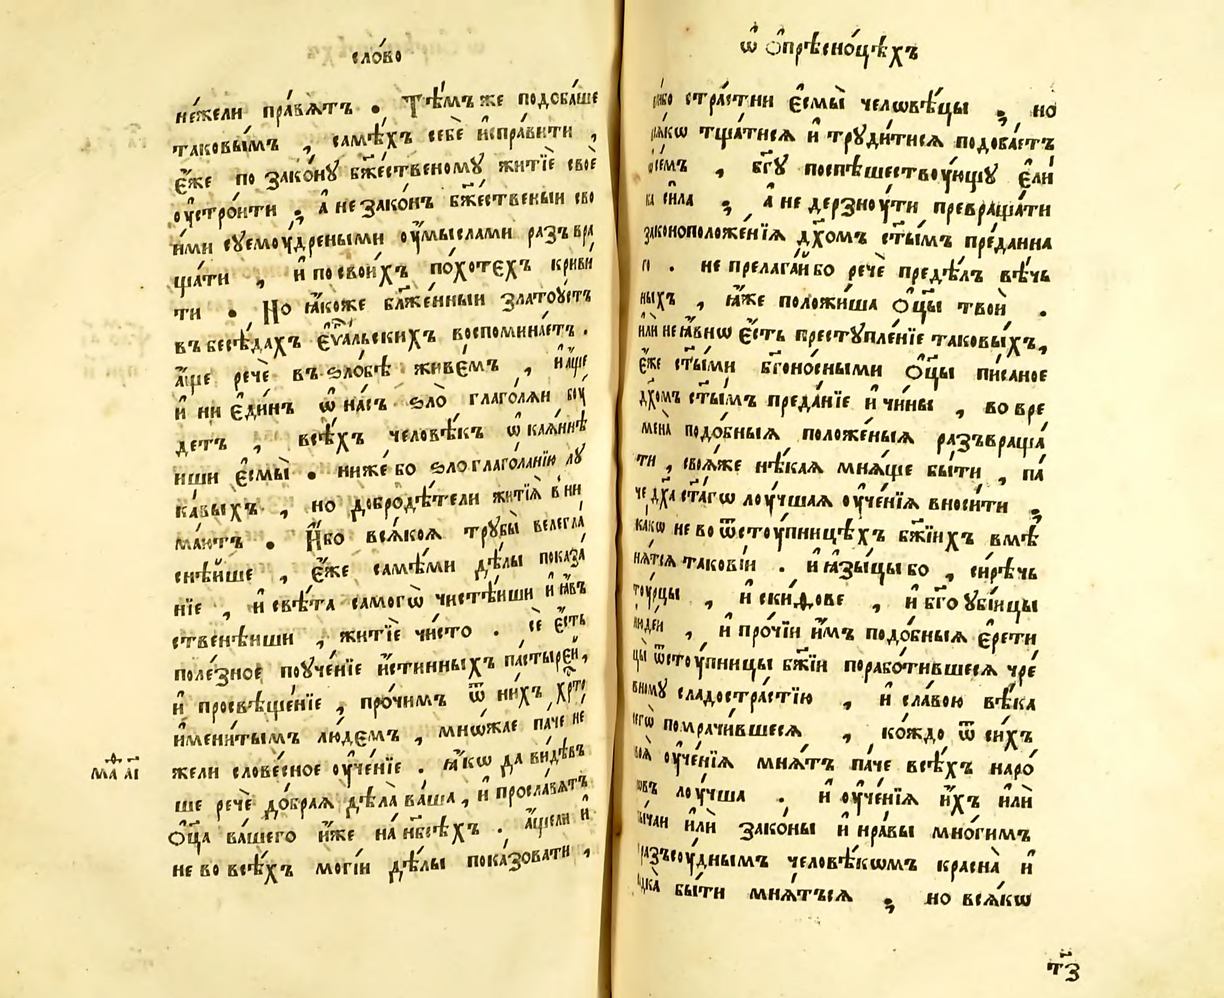 сло́во
не́жели пра́вѧтъ . Тѣ́мъ же подоба́ше
таковы́мъ , самѣ́хъ себѐ и҆спра́вити ,
є҆́же по зако́ну бж҃е́ственому житїѐ своѐ
оу҆стро́ити ; а҆ не зако́нъ бж҃е́ственыи сво
и́ми суемоу́дреными оу҆́мыслами разъвра
ща́ти , и҆ по свои́хъ по́хотехъ криви́
ти . Но ꙗ҆́коже бл҃же́нныи златоу́стъ
въ бесѣ́дахъ є҆ѵⷢ҇а́льскихъ воспомина́етъ .
а҆́ще речѐ въ ѕло́бѣ живе́мъ , и҆ а҆́ще
и҆ ни є҆ди́нъ ѿ на́съ ѕло̀ глаго́лѧи боу́
детъ , всѣ́хъ человѣ́къ ѡ҆каѧ́ннѣ
иши є҆смы̀ . ниже́ бо ѕло глаго́ланїю лу
ка́выхъ , но добродѣ́тели житїѧ̀ вни
ма́ютъ . И҆́бо всѧ́коѧ трубы̀ велегла́
снѣ́йше , є҆́же самѣ́ми дѣ́лы показа́
нїе , и҆ свѣ́та самогѡ̀ чистѣ́иши и҆ ꙗ҆́въ
ственѣ́иши , житїѐ чи́сто . сѐ є҆́сть
поле́зное поуче́нїе и҆́стинныхъ па́стырей ,
и҆ просвѣще́нїе , про́чимъ ѿ ни́хъ хрⷭ҇то
и҆мени́тымъ лю́демъ , мно́жае па́че не́
жели слове́сное оу҆че́нїе . ꙗ҆́кѡ да ви́дѣвъ
ше речѐ до́браѧ дѣла̀ ва́ша , и҆ просла́вѧтъ
Ѻ҆ц҃а̀ ва́шего и҆́же на́ нб҃сѣ́хъ . а҆́щели и҆
не во всѣ́хъ моги́и дѣ́лы пока́зовати ,
маⷴ҇ а҃і
ѡ҆ Ѻ҆прѣсно́цѣхъ
стра́стни є҆смы̀ человѣ́цы ; но
тща́тисѧ и҆ труди́тисѧ подоба́етъ
, бг҃у поспѣшествоу́ющу є҆ли́
ка си́ла ; а҆ не дерзноу́ти превраща́ти
законоположе́нїѧ дх҃омъ ст҃ы́мъ пре́данна
го . не прелага́й бо речѐ предѣ́лъ вѣ́чь
ныхъ , ꙗ҆́же положи́ша Ѻ҆ц҃ы̀ твоѝ .
и҆лѝ не ꙗ҆́внѡ є҆́сть преступле́нїе таковы́хъ ,
є҆́же ст҃ы́ми бг҃оно́сными Ѻ҆ц҃ы̀ пи́саное
дх҃омъ ст҃ы́мъ преда́нїе и҆ чи́ны , во вре
мена̀ подо́бныѧ положе́ныѧ разъвраща́
ти , своѧ́же нѣ́каѧ мнѧ́ще бы́ти , па́
че дх҃а ст҃а́гѡ лоу́чшаѧ оу҆че́нїѧ вноси́ти ;
ка́кѡ не во ѿстоу́пницѣхъ бж҃їихъ вмѣ
нѧ́тсѧ такові́и . и҆ ꙗ҆зы́цы бо , си́рѣчь
тоу́рцы , и҆ ски́ѳове , и҆ бг҃оубі́ицы
і҆юде́и , и҆ про́чїи и҆̀мъ подо́бныѧ є҆рети
цы̀ ѿстоу́пницы бж҃їи порабо́тившеcѧ чре́
вному сладостра́стїю , и҆ сла́вою вѣ́ка
сегѡ̀ помрачи́вшесѧ , ко́ждо ѿ си́хъ
своѧ̀ оу҆че́нїѧ мнѧ́тъ па́че всѣ́хъ наро́
довъ лоу́чша . и҆ оу҆че́нїѧ и҆́хъ и҆лѝ
ѻ҆бы́чаи и҆лѝ зако́ны и҆ нра́вы мно́гимъ
неразъсоу́днымъ человѣ́кѡмъ красна̀ и҆
сладка̀ бы́ти мнѧ́тъсѧ ; но всѧ́кѡ
т҃з